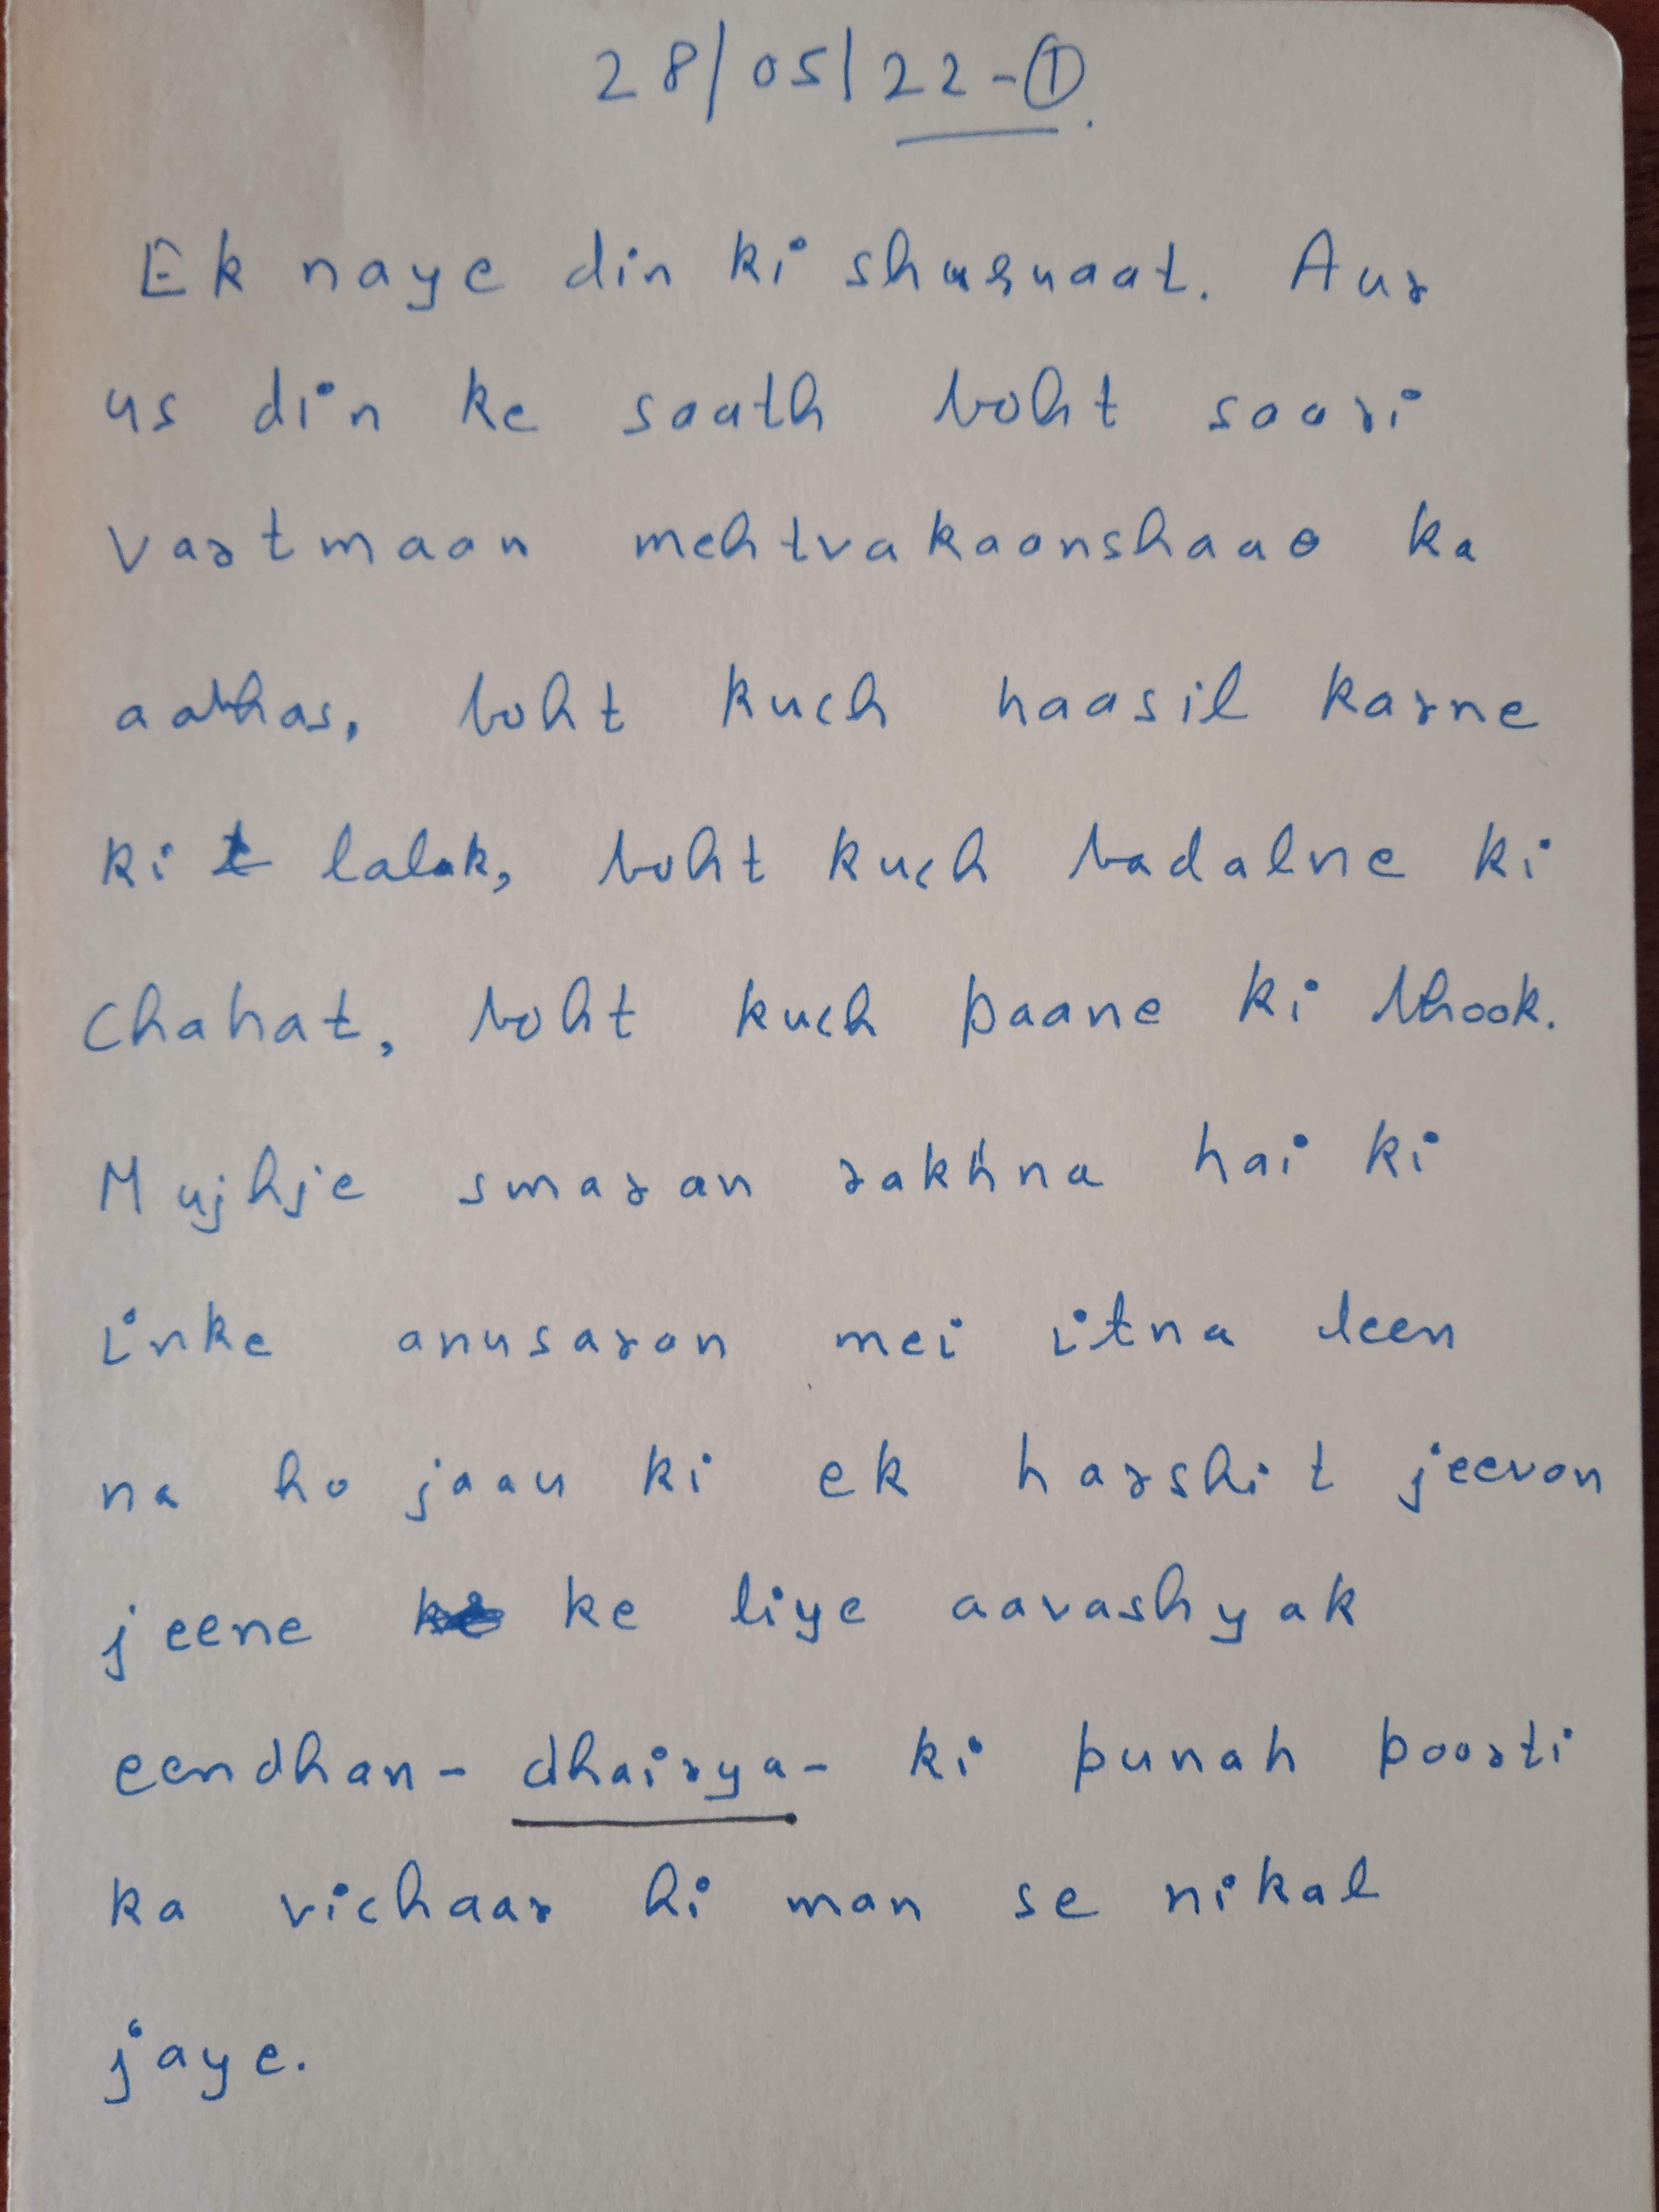 28/05/22-①.
Ek naye din ki shuruaat. Aur
us din ke saath boht saari
vartmaan mehtvakaanshaao ka
aabhas, boht kuch haasil karne
ki lalak, boht kuch badalne ki
Chahat, boht kuch paane ki bhook.
Mujhje smaran rakhna hai ki
inke anusaran mei itna leen
na ho jaau ki ek harshit jeevan
jeene ke liye aavashyak
eendhan- dhairya- ki punah poorti
ka vichaar hi man se nikal
jaye.